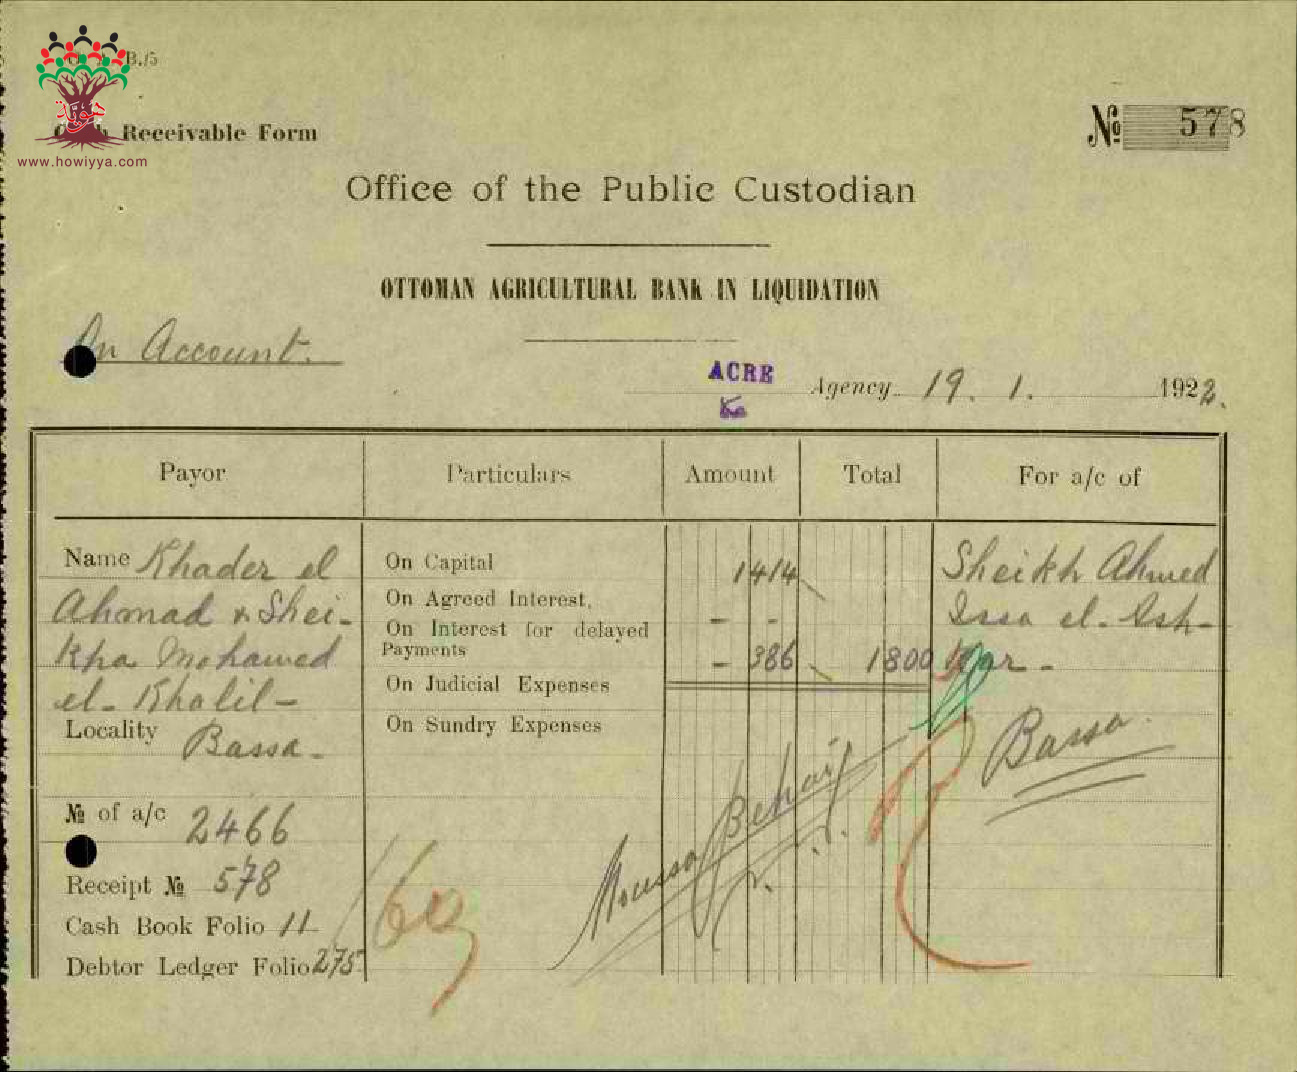 B./5
Receivable Form
هوية
www.howiyya.com
№ 578
Office of the Public Custodian
OTTOMAN AGRICULTURAL BANK IN LIQUIDATION
On Account.
ACRE Agency 19. 1. 1922.
Payor Particulars Amount Total For a/c of
Name Khader el
Ahmad & Shei-
kha Mohamed
el-Khalil-
Locality Bassa-
№ of a/c 2466
Receipt № 578
Cash Book Folio 11
Debtor Ledger Folio 275
On Capital 1414
On Agreed Interest, - -
On Interest for delayed
Payments - 386 1800
On Judicial Expenses
On Sundry Expenses
Sheikh Ahmed
Issa el-Ish-
kar-
Bassa
Moussa Behai